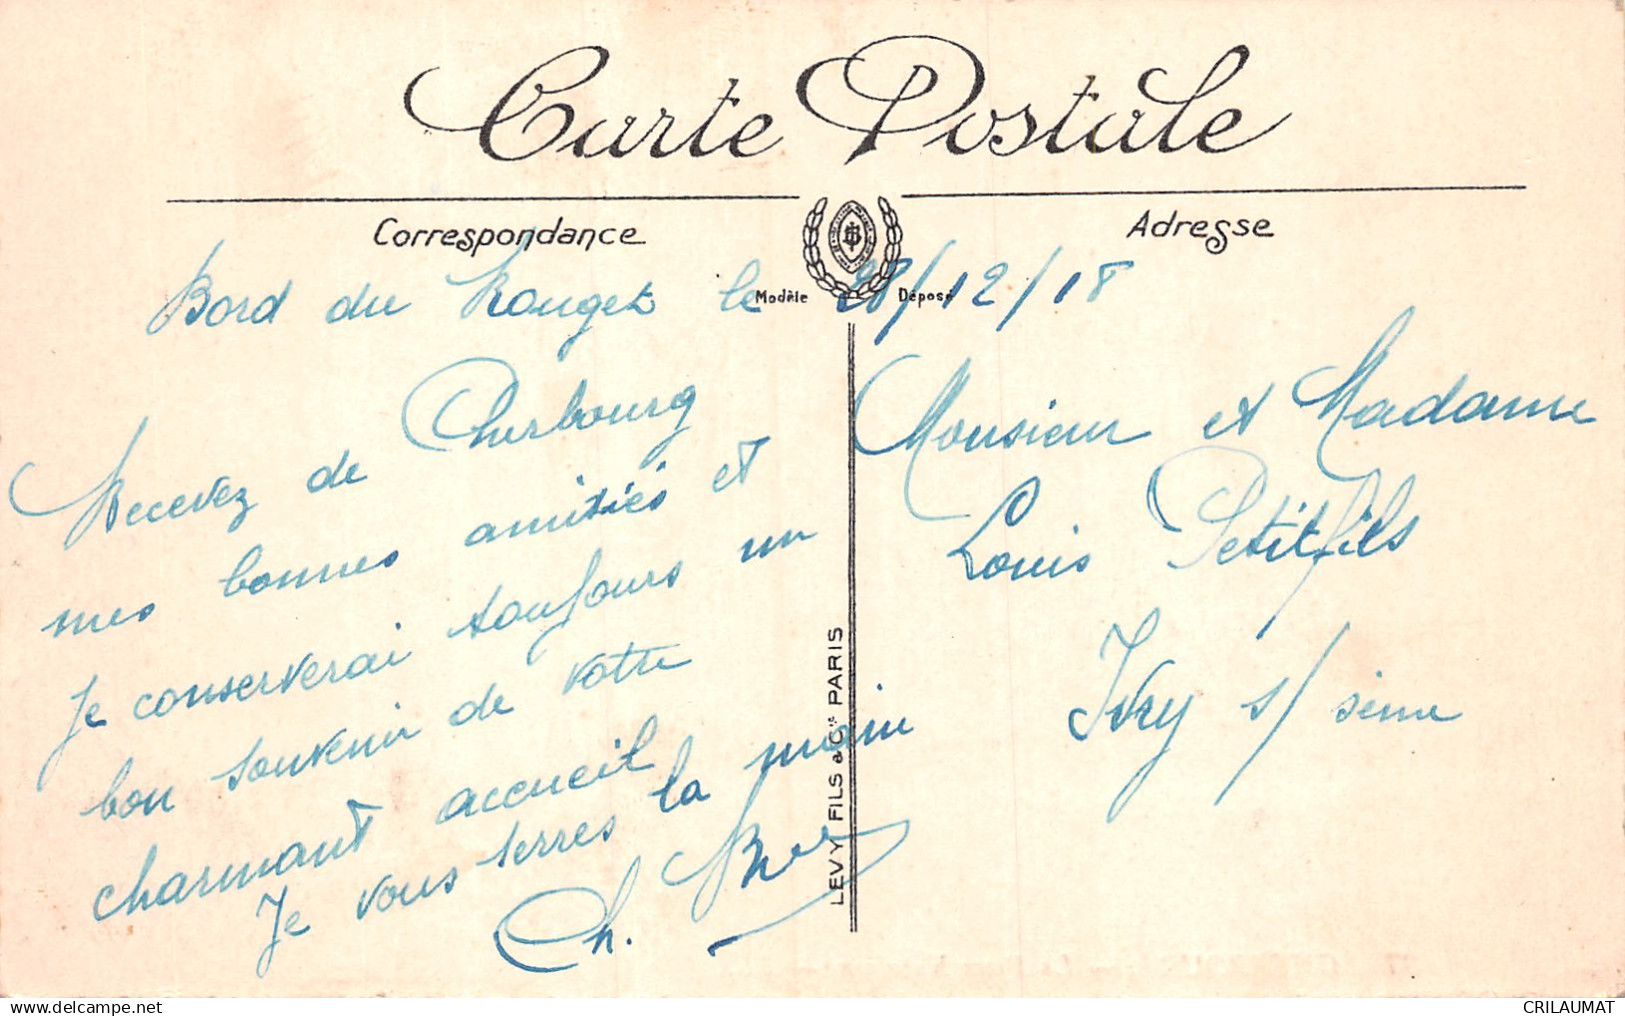 Carte Postale
Correspondance
Adresse
Modèle Déposé
Bord du Rouget le 28/12/18
Recevez de Cherbourg
mes bonnes amitiés et
Je conserverai toujours un
bon souvenir de votre
charmant accueil
Je vous serres la main
Ch.
Monsieur et Madame
Louis Petitfils
Ivry s/ seine
LEVY FILS & Cie PARIS
CRILAUMAT